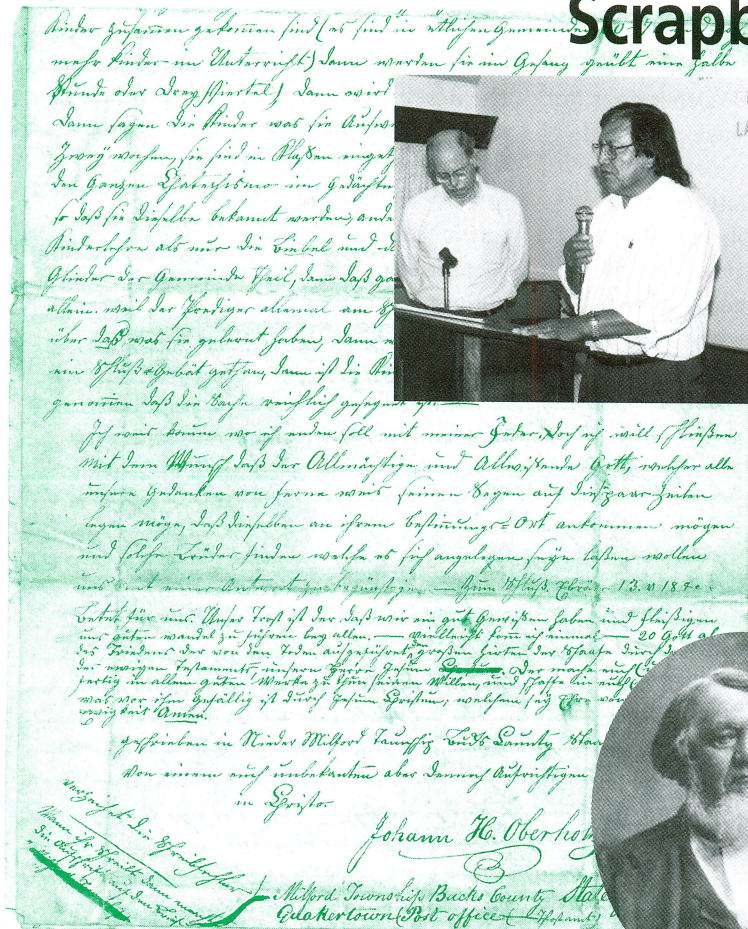 Scrapb
Kinder zusammen gekommen sind (es sind in etlichen Gemeinden
mehr Kinder im Unterricht) dann werden sie im Gesang geübt eine halbe
Stunde oder Drey Viertel) Dann wird
Dann sagen die Kinder was sie Auswe
Zwey wochen, sie sind in Klaßen einget
den Ganzen Chatechismo im Gedächtn
so daß sie dieselbe bekannt werden, ande
Kinderlehre als nur die Biebel und d
Glieder der Gemeinde Theil, dann daß ga
allein. weil der Prediger allemal am
über daß was sie gelernt haben, dann
ein Schluß-Gebät gethan, dann ist die Ki
genomen daß die Sache reichlich gesegnet ist.
Ich weis kaum wo ich enden soll mit meiner Feder. Doch ich will schließen
mit dem Wunsch daß der Allmächtige und Allwissende Gott, welcher alle
unsere Gedanken von ferne weis seinen Segen auf dies paar Zeilen
legen möge, daß dieselben an ihrem bestimungs-Ort ankommen mögen
und solche Brüder finden welche es sich angelegen seyn laßen wollen
uns mit einer Antwort zu begünstigen. — Zum Schluß. Ebrä 13. v 18
Betet für uns. Unser Trost ist der daß wir ein gut Gewißen haben und fleißigen
uns guten wandel zu führen bey allen. — vielleicht kom ich einmal — 20 Gott ab
des Friedens der von den Toden ausgeführet den großen Hirten der Schaafe durch d
des ewigen Testaments unsern Herrn Jesum. Der mache euch
fertig in allem guten Werke zu thun seinen Willen, und schaffe in euch
was vor ihm Gefällig ist durch Jesum Christum; welchem sey Ehre von
ewigkeit Amen.
geschrieben in Nieder Milford Taunschip Bucks Caunty Staa
Von einem euch unbekanten aber dennoch Aufrichtigen
in Christo.
Johann H. Oberhol
verzeihet die Schreibfehler
Wann ihr schreibt dann macht
die Aufschrift auf den Brief
Milford Township Bucks County State
Quakertown (Post office (Postamt)
LA